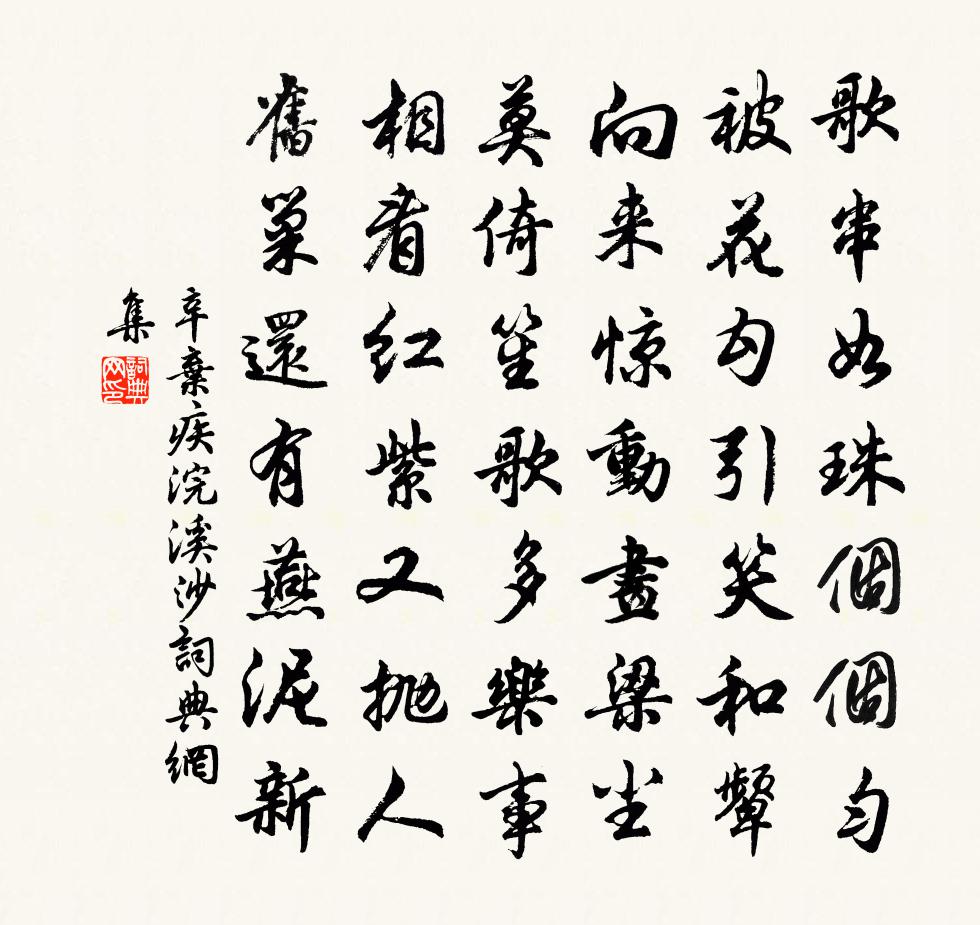 歌串如珠個個勻
被花勾引笑和顰
向来惊動畫梁尘
莫倚笙歌多樂事
相看红紫又抛人
舊巢還有燕泥新
辛棄疾浣溪沙詞典網
集
詞典
网印